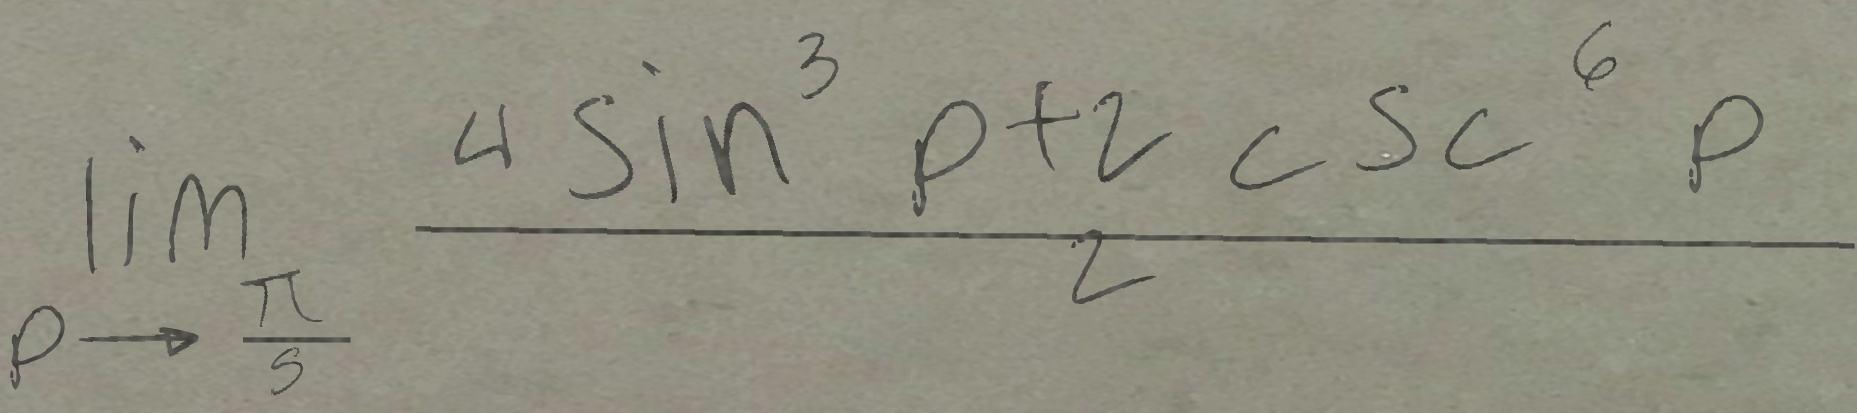 lim p → π/5 (4 sin^3 p + 2 csc^6 p)/2